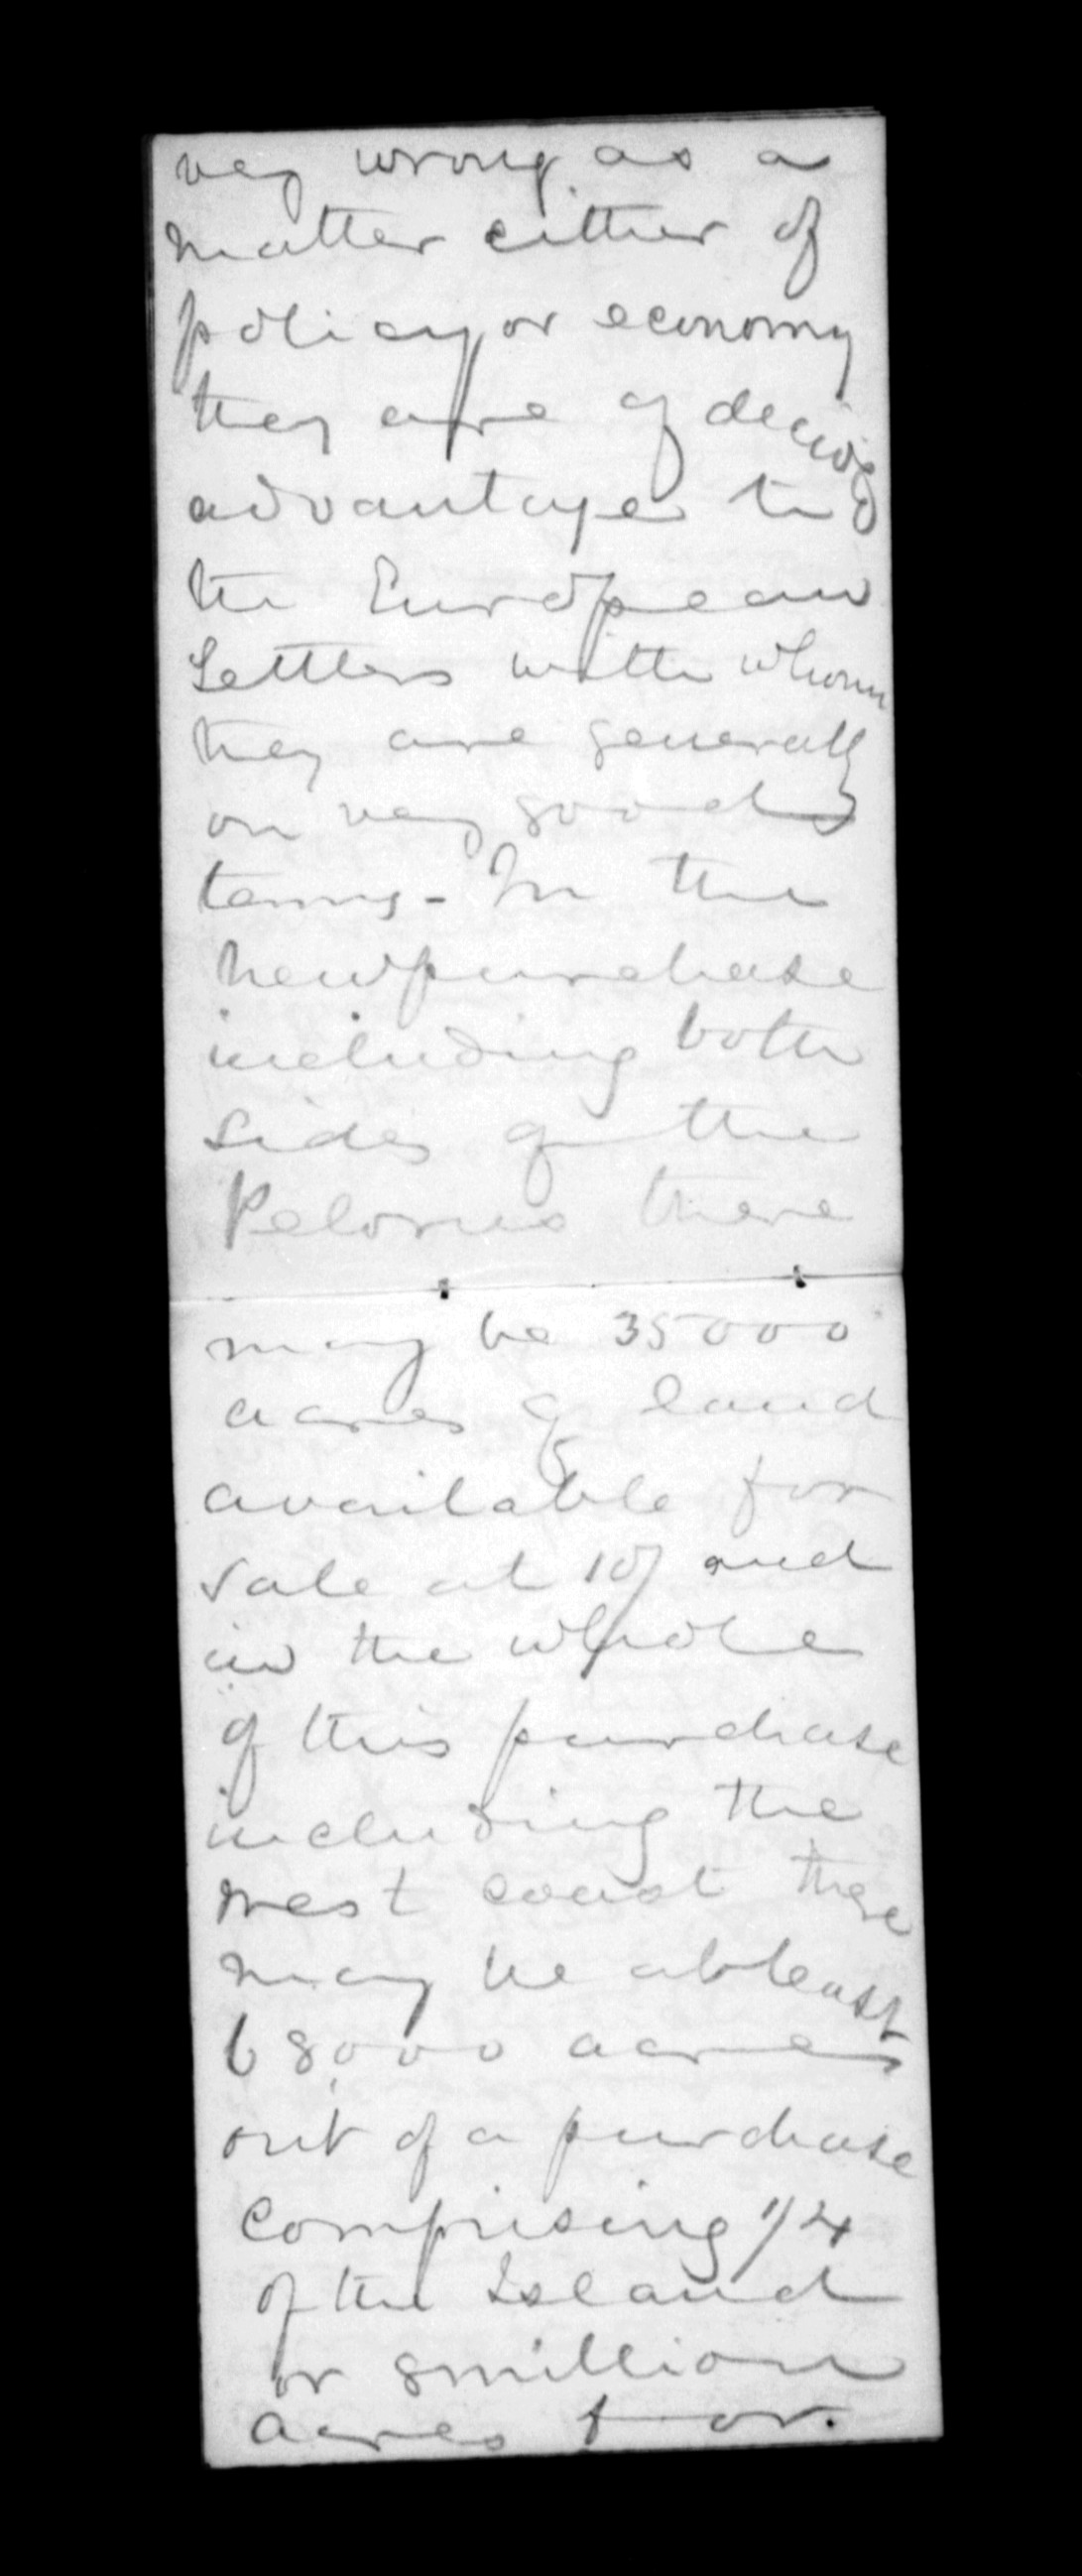 very wrong as a
matter either of
policy or economy
they are of decided
advantage to
the European
Settlers with whom
they are generally
on very good
terms - In the
new purchase
including both
sides of the
Pelorus there
may be 35000
acres of land
available for
sale at 10/ and
in the whole
of this purchase
including the
west coast there
may be at least
68,000 acres
out of a purchase
comprising 1/4
of the Island
or 8 million
acres for.